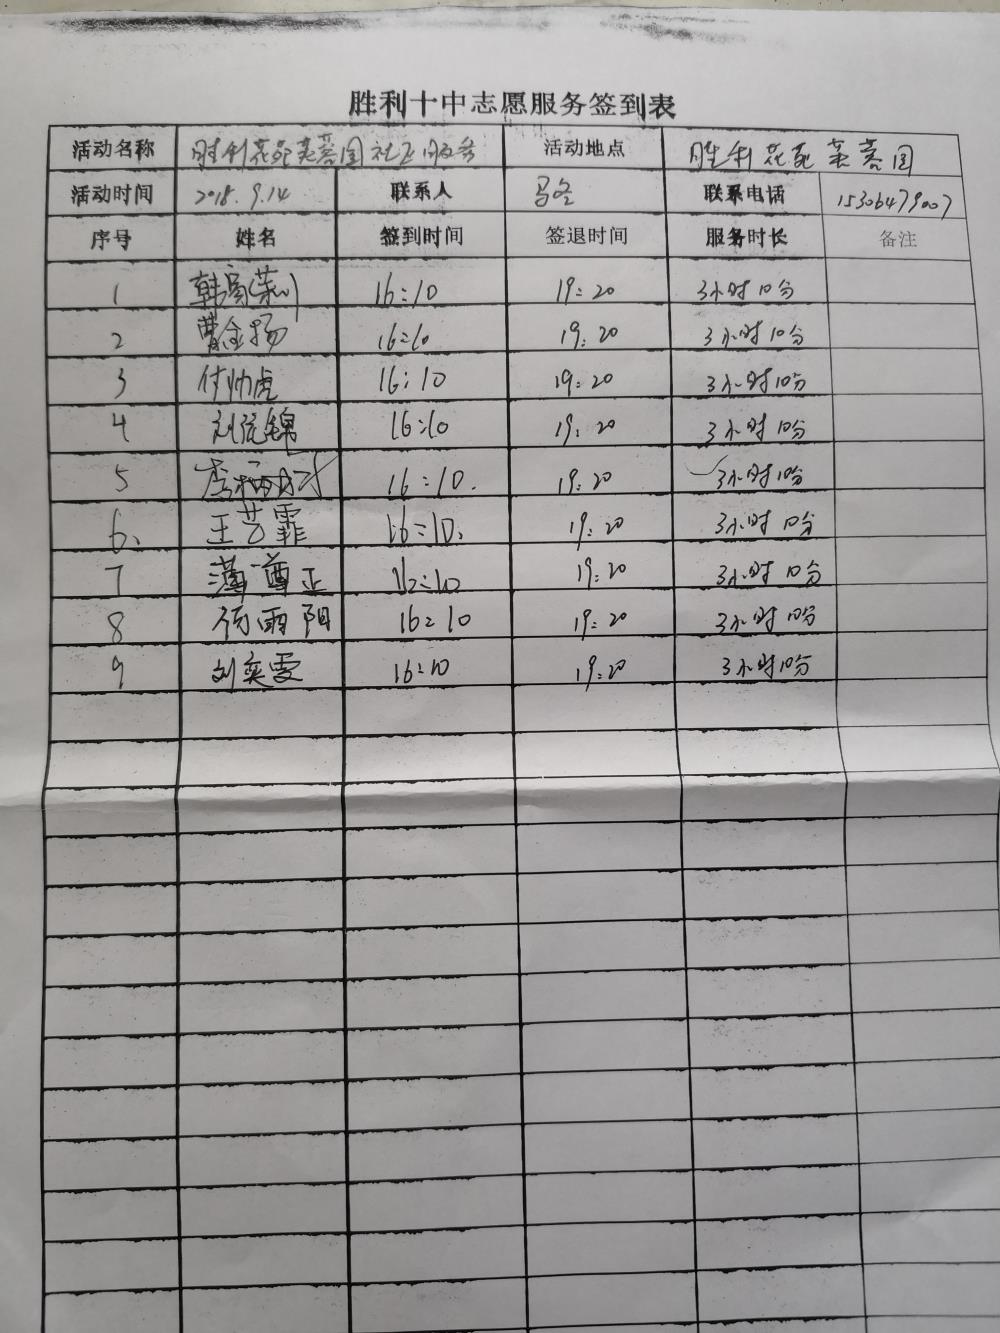 胜利十中志愿服务签到表
活动名称 胜利花苑芙蓉园社区服务 活动地点 胜利花苑芙蓉园
活动时间 2018.9.14 联系人 冯冬 联系电话 15306479007
序号 姓名 签到时间 签退时间 服务时长 备注
1 16:10 19:20 3小时10分
2 曹金扬 16:10 19:20 3小时10分
3 付帅虎 16:10 19:20 3小时10分
4 16:10 19:20 3小时10分
5 16:10. 19:20 3小时10分
6、 王艺霏 16:10、 19:20 3小时10分
7 尊正 16:10 19:20 3小时10分
8 雨阳 16:10 19:20 3小时10分
9 刘奕雯 16:10 19:20 3小时10分